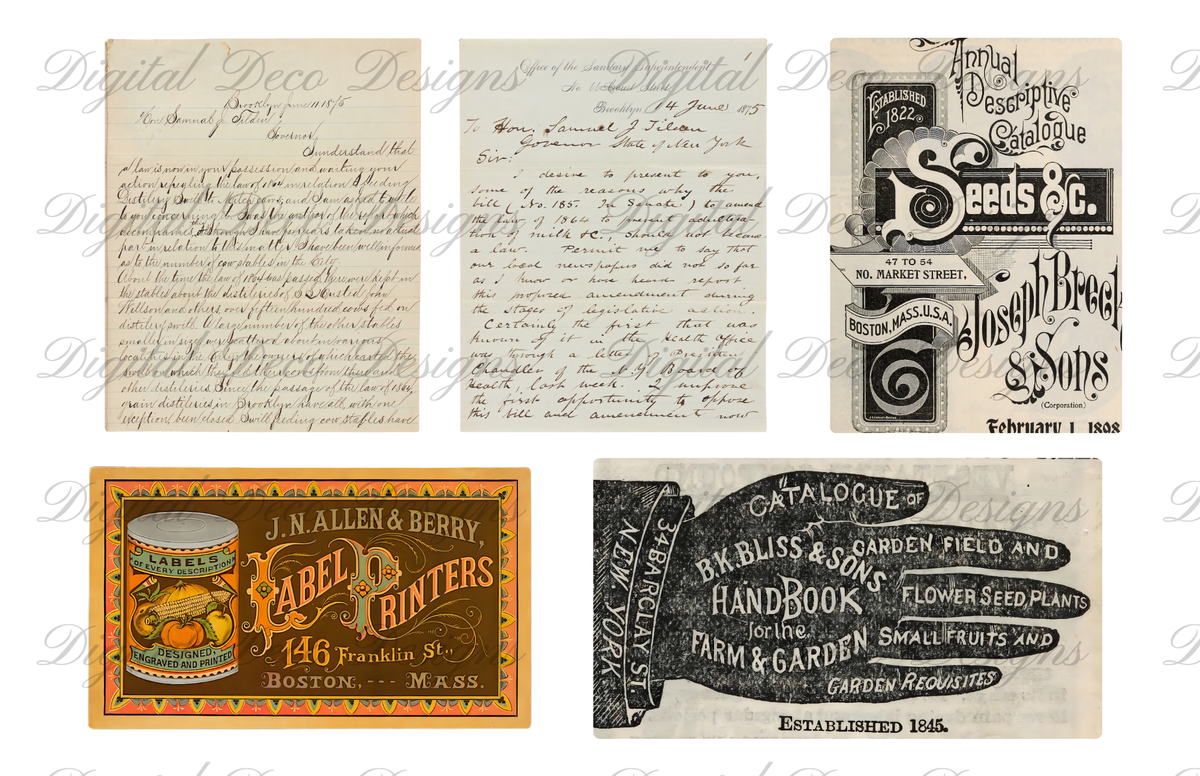 Digital Deco Designs
Brooklyn June 11 1875
Hon Samuel J Tilden
Governor
I understand that
a law is now in your possession and waiting your
action repealing the law of 1864 in relation to feeding
distillery
to you concerning the
part in relation to
as to the number
About the time of the passage of
the stables about the distillery of
Wilson and others over fifteen hundred cows fed on
distillery swill. A large number of the other stables
smaller in size are scattered about in various
localities in the City the owners of which carted the
swill on which they fed the cows from these and
other distilleries Since the passage of the law of 1864,
grain distilleries in Brooklyn have all, with one
exception, been closed. Swill feeding cow stables have
Office of the Sanitary Superintendent
No. Court Street
Brooklyn, 14 June 1875
To Hon. Samuel J Tilden
Governor State of New York
Sir:
I desire to present to you,
some of the reasons why the
bill (No. 185. In Senate) to amend
the law of 1864 to prevent adultera-
tion of milk &c, should not become
a law. Permit me to say that
our local newspapers did not so far
as I know or have heard report
this proposed amendment during
the stages of legislative action.
Certainly the first that was
known of it in the Health Office
was through a letter of President
Chandler of the N.Y. Board of
Health, last week. I improve
the first opportunity to oppose
this bill and amendment now
Annual
Descriptive
Catalogue
Established
1822.
Seeds &c.
47 TO 54
NO. MARKET STREET,
BOSTON, MASS. U.S.A.
Joseph Breck
& Sons
(Corporation)
February 1, 1898
J.N. ALLEN & BERRY,
LABEL PRINTERS
146 Franklin St.,
BOSTON, --- MASS.
LABELS
OF EVERY DESCRIPTION
DESIGNED,
ENGRAVED AND PRINTED
34 BARCLAY ST.
NEW YORK
CATALOGUE OF
B.K. BLISS & SONS
HANDBOOK
for the
FARM & GARDEN
GARDEN FIELD AND
FLOWER SEED, PLANTS
SMALL FRUITS AND
GARDEN REQUISITES
ESTABLISHED 1845.